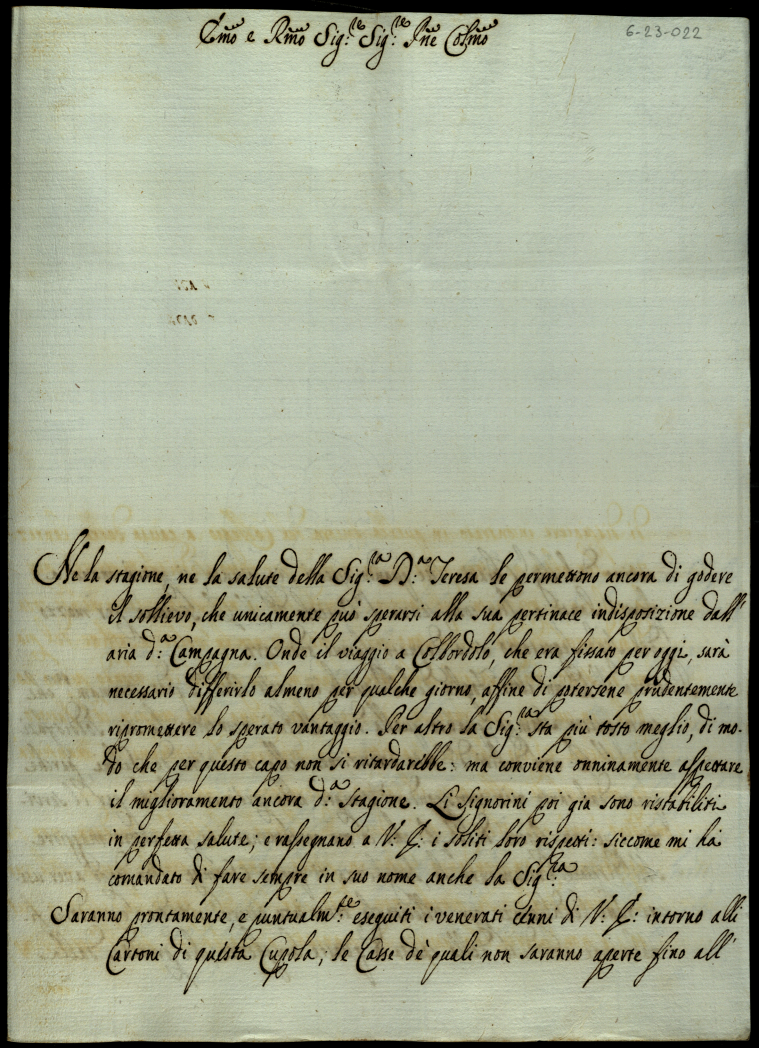 Emo e Rmo Sig:re Sig:re Pne Colmo
6-23-022
Ne la stagione, ne la salute della Sig:ra D:a Teresa le permettono ancora di godere
il sollievo, che unicamente può sperarsi alla sua pertinace indisposizione dall'
aria d:a Campagna. Onde il viaggio a Colbordolo, che era fissato per oggi, sarà
necessario differirlo almeno per qualche giorno, affine di potersene prudentemente
ripromettere lo sperato vantaggio. Per altro la Sig:ra sta più tosto meglio, di mo-
do che per questo capo non si ritardarebbe: ma conviene onninamente aspettare
il miglioramento ancora d:a stagione. Li Signorini poi gia sono ristabiliti
in perfetta salute; e rassegnano a V: E: i soliti loro rispetti: siccome mi hà
comandato di fare sempre in suo nome anche la Sig:ra
Saranno prontamente, e puntualm:te eseguiti i venerati cenni di V: E: intorno alli
Cartoni di questa Cupola; le Casse de' quali non saranno aperte fino all'